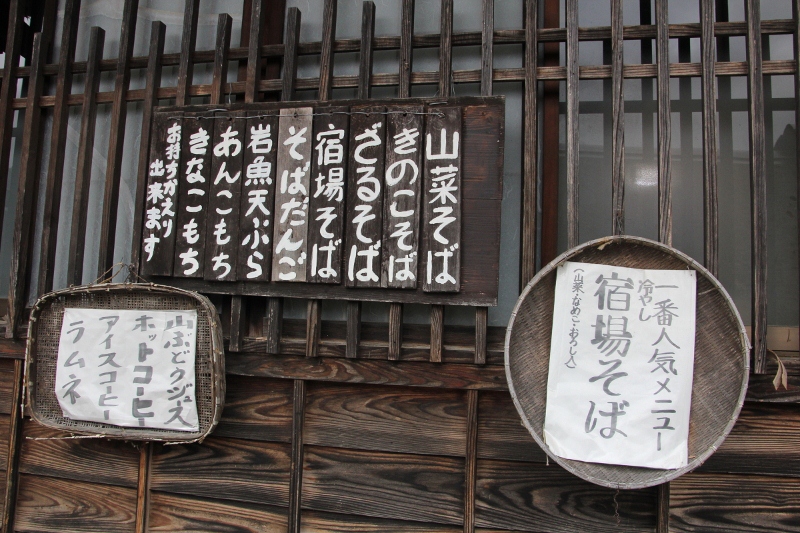 山菜そば
きのこそば
ざるそば
宿場そば
そばだんご
岩魚天ぷら
あんこもち
きなこもち
お持ちがえり
出来ます
一番人気メニュー
冷やし
宿場そば
(山菜・なめこ・おろし入)
山ぶどうジュース
ホットコーヒー
アイスコーヒー
ラムネ